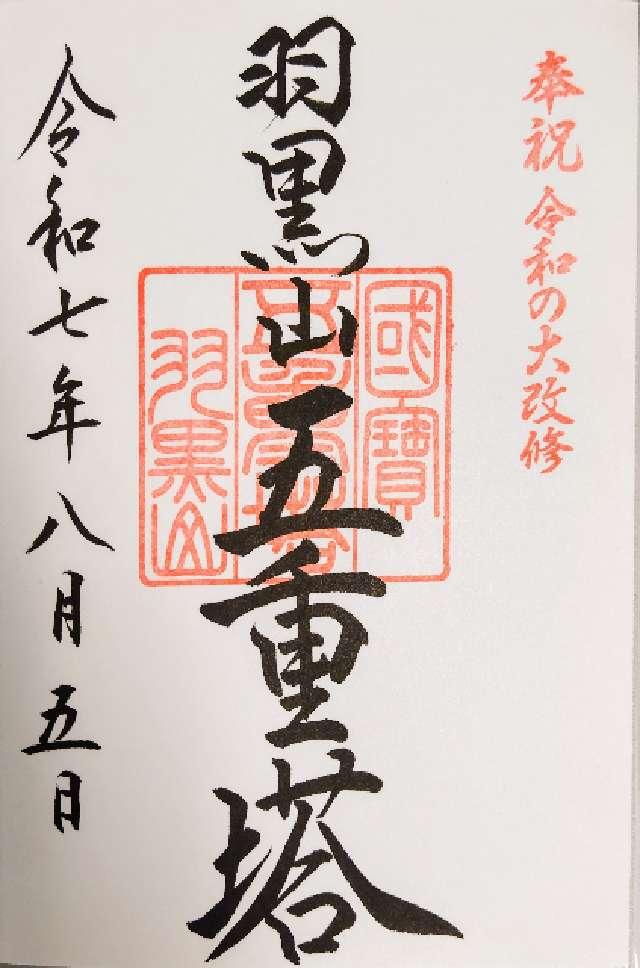 奉祝 令和の大改修
羽黒山五重塔
國寶
五重塔
羽黒山
令和七年八月五日